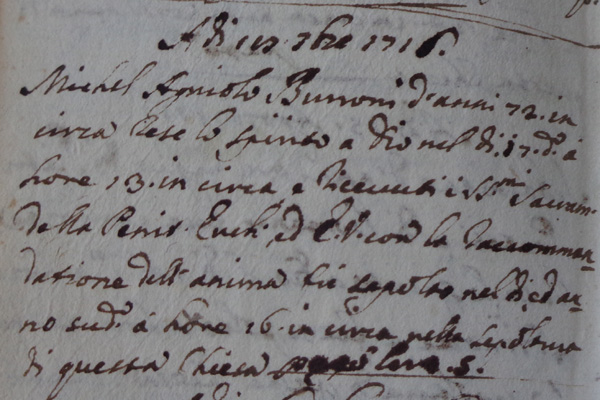 A di 17. 7bre 1716.
Michel Agniolo Burroni d'anni 72. in
circa rese lo spirito a Dio nel dì. 17. dº. á
hore 13. in circa, e ricevuti i SSmi Sacram:
della Penit. Euch: ed E.V. con la raccoman=
datione dell' anima fù sepolto nel dì, ed an=
no sudº. á hore 16. in circa nella sepoltura
di questa Chiesa